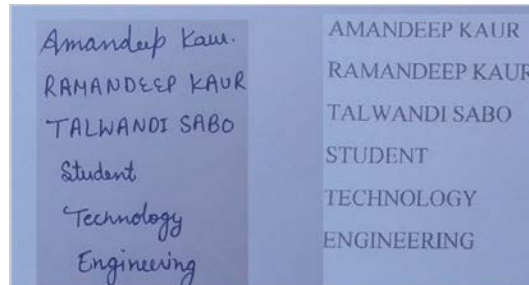 Amandeep Kaur.
RAMANDEEP KAUR
TALWANDI SABO
Student
Technology
Engineering
AMANDEEP KAUR
RAMANDEEP KAUR
TALWANDI SABO
STUDENT
TECHNOLOGY
ENGINEERING